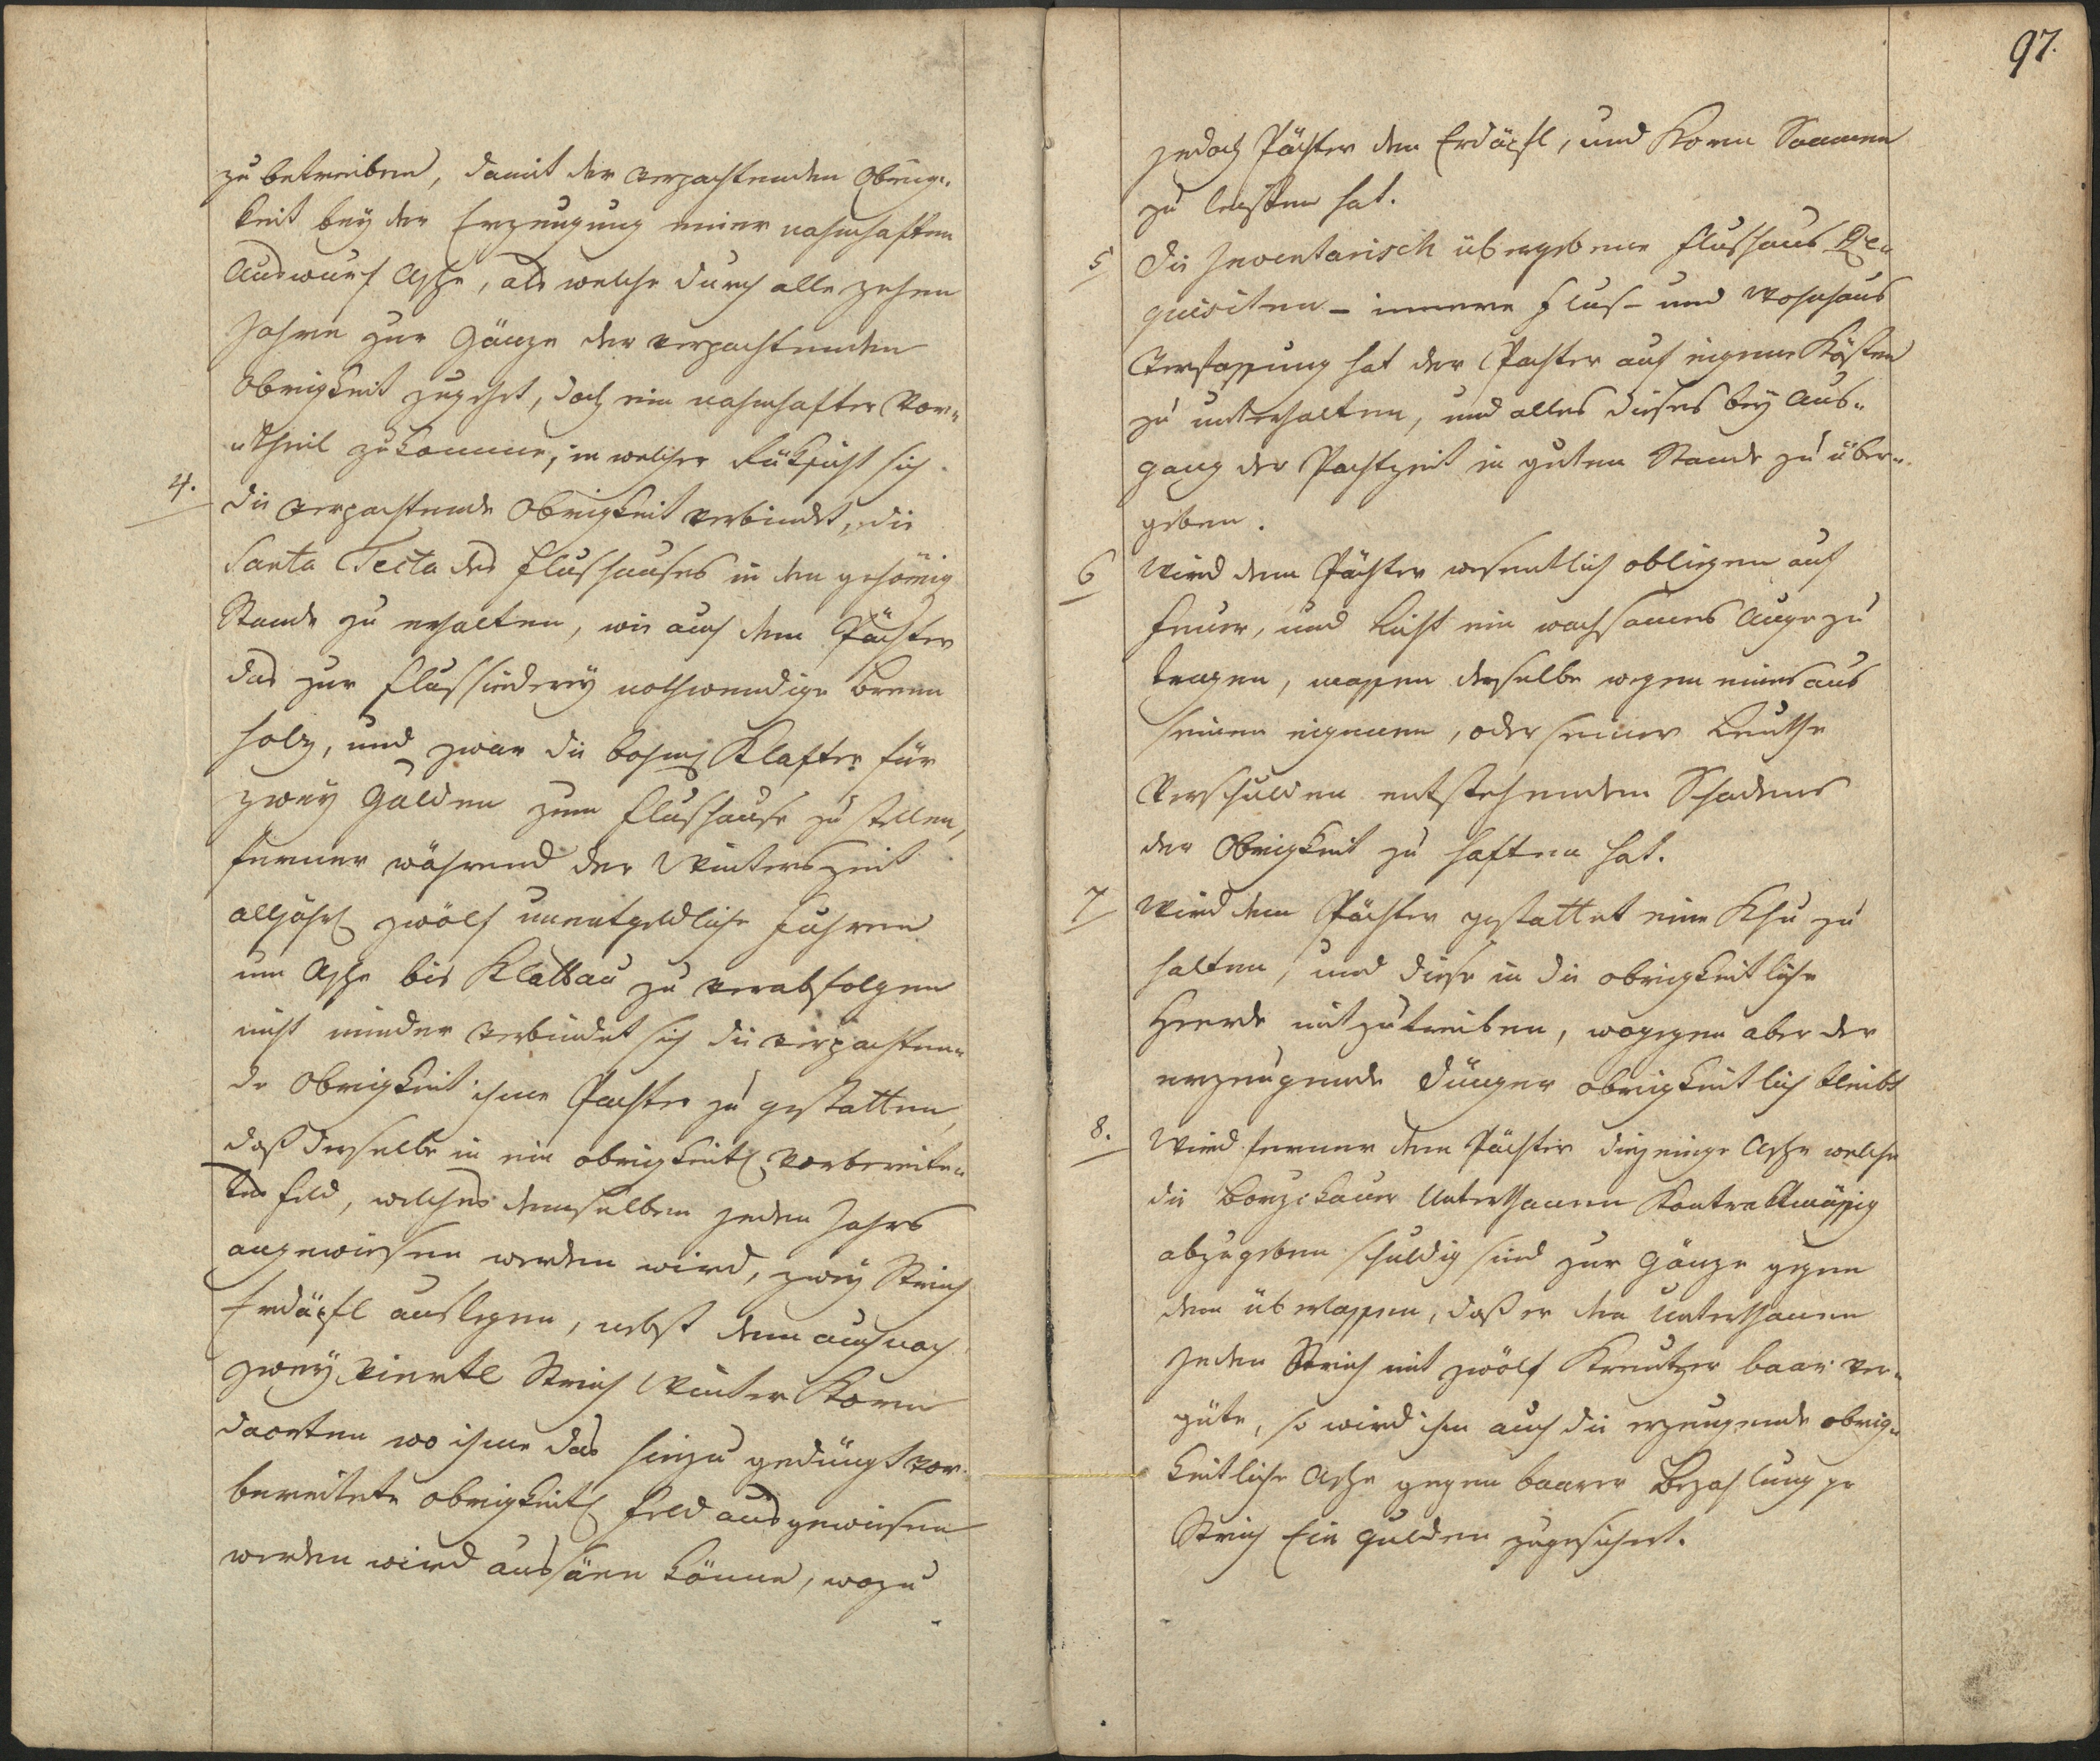 zu betreiben, damit der verpachtenden Obrig„
keit bey der Erzeugung einer nahmhaften
Auswurf Asche, als welche durch alle zehen
Jahre zur Gänze der verpachtenden
Obrigkeit zugehet, doch ein nahmhafter Vor„
„theil zukomme, in welcher Rüksicht sich
4. die verpachtende Obrigkeit verbindet, die
Sarta Tecta des Flushauses in den gehörig
Stande zu erhalten, wie auch dem Pächter
das zur Flussiederey nothwendige Brenn
holz, und zwar die böhmi Klafter für
zwey Gulden zum Flushause zu stellen,
ferner während der Winterszeit
alljährl zwölf unentgeldliche Fuhren
um Asche bis Klattau zu verabfolgen
nicht minder verbindet sich die verpachten„
de Obrigkeit ihme Pachter zu gestatten,
daß derselbe in ein obrigkeitl vorbereite„
tes Feld, welches demselben jeden Jahrs
angewiesen werden wird, zwey Strich
Erdäpfl auslegen, nebst dem auch noch
zwey Viertl Strich Winter Korn
daorten wo ihme das hinzu gedüngt vor„
bereitete obrigkeitl Feld ausgewiesen
werden wird aussäen könne, wozu
97.
jedoch Pächter den Erdäpfl, und Korn Saamen
zu leisten hat.
5 Die Inventarisch übergebene Flushaus Re„
quisiten – innere Flus- und Wohnhaus
Verfassung hat der Pachter auf eigene Kösten
zu unterhalten, und alles dieses bey Aus„
gang der Pachtzeit in guten Stande zu über„
geben.
6 Wird dem Pächter wesentlich obliegen auf
Feuer, und Licht ein wachsames Auge zu
tragen, massen derselbe wegen eines aus
seinen eigenen, oder seiner Leuthe
Verschulden entstehenden Schadens
der Obrigkeit zu haften hat.
7 Wird dem Pächter gestattet eine Khu zu
halten, und diese in die obrigkeitliche
Heerde mitzutreiben, wogegen aber der
erzeugende Dünger obrigkeitlich bleibt
8. Wird ferner dem Pächter diejenige Asche welche
die Unterthanen Kontraktmässig
abzugeben schuldig sind zur Gänze gegen
dem überlassen, daß er den Unterthanen
jeden Strich mit zwölf Kreutzer baar ver„
güte, so wird ihm auch die erzeugende obrig„
keitliche Asche gegen baarer Bezahlung pr
Strich Ein Gulden zugesichert.